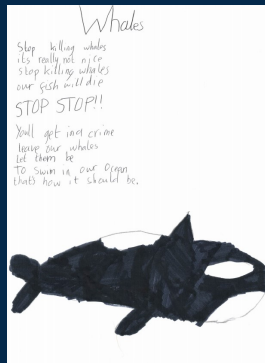 Whales
Stop killing whales
its really not nice
stop killing whales
our fish will die
STOP STOP!!
Youll get in a crime
leave our whales
let them be
TO swim in our Ocean
thats how it should be.